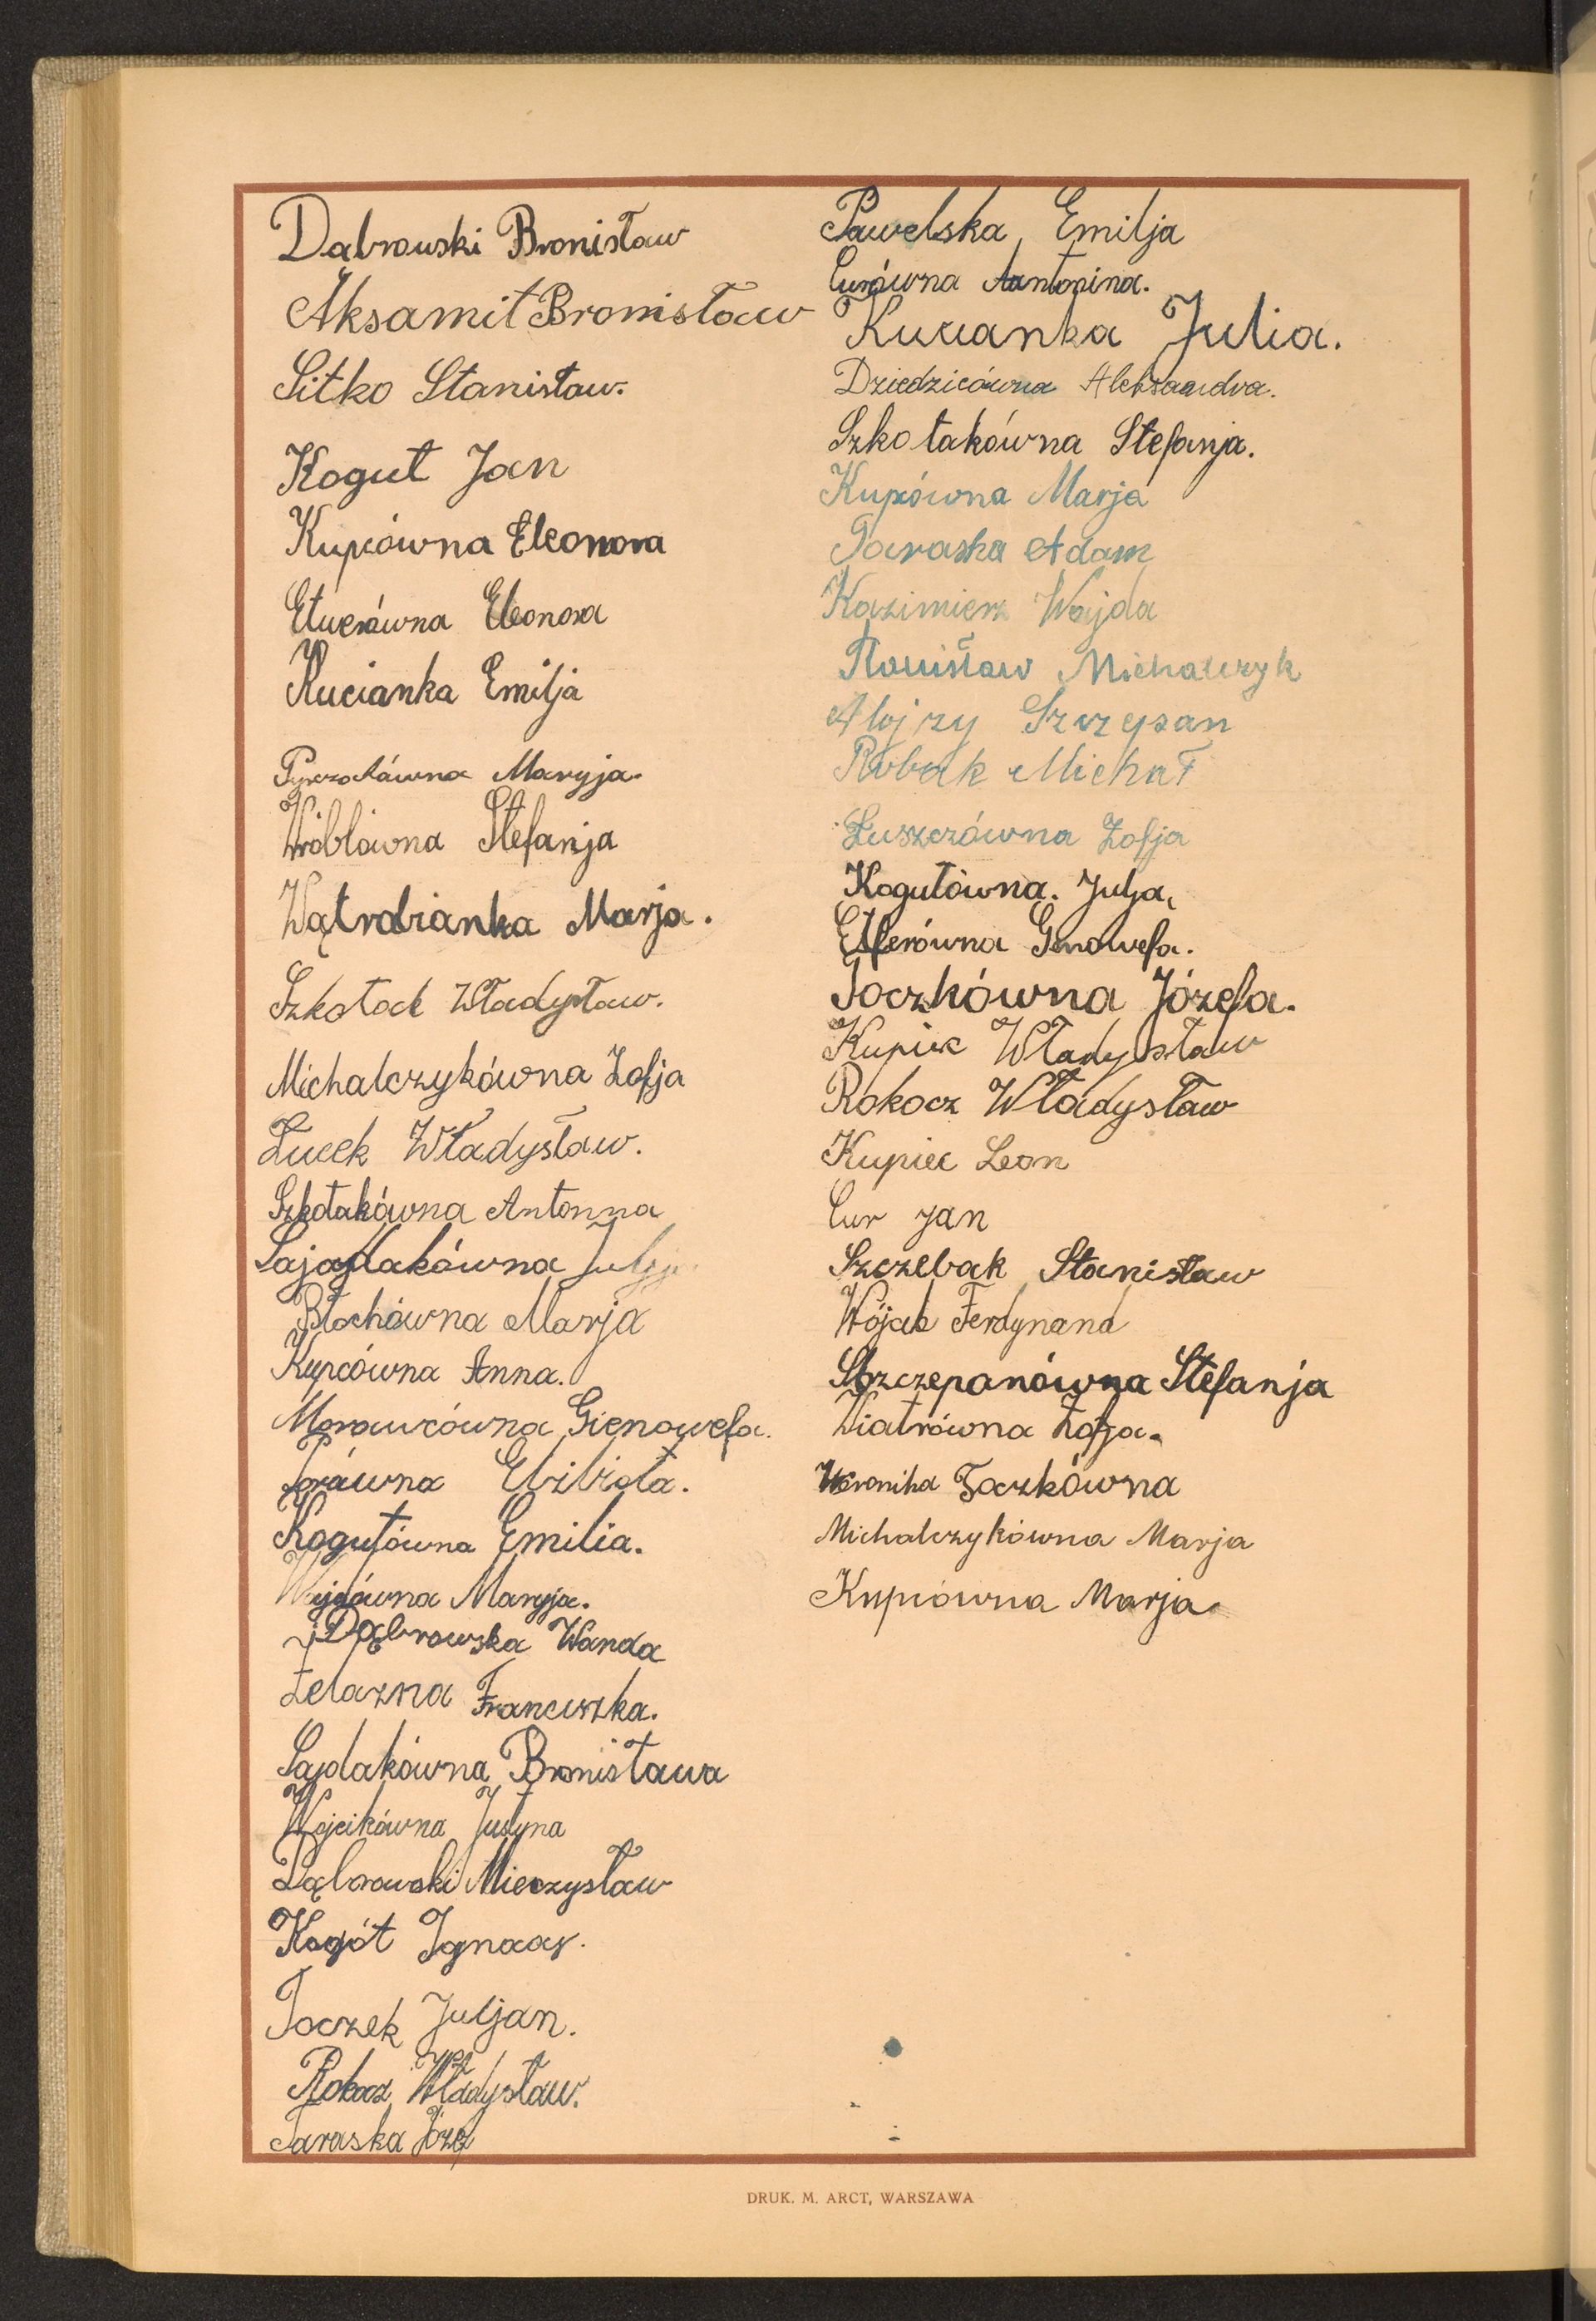 Dabrowski Bronisław
Aksamit Bronisław
Sitko Stanisław.
Kogut Jan
Kupcówna Eleonora
Etwerówna Eleonora
Kucianka Emilja
Maryja.
Wróblówna Stefanja
Wątrobianka Marja.
Szkołak Władysław.
Michalczykówna Zofja
Lucek Władysław.
Szkołakówna Antonna
Sajdakówna Julja
Błachówna Marja
Kupcówna Anna.
Morawcówna Gienowefa.
Elzbieta.
Kogutówna Emilia.
Wajdówna Maryja.
Dąbrowska Wanda
Żelazna Franciszka.
Sajdakówna Bronisława
Wojcikówna Justyna
Dąbrowski Mieczysław
Kogót Ignacy.
Toczek Juljan.
Rokosz Władysław.
Taraska Józef
Pawelska Emilja
Curówna Aantonina.
Kucianka Julia.
Dziedzicówna Aleksandra.
Szkołakówna Stefanja.
Kupcówna Marja
Taraska Adam
Kazimierz Wajda
Stanisław Michalczyk
Alojzy Szczepan
Robak Michał
Łuszczówna Zofja
Kogutówna. Julja,
Etlerówna Genowefa.
Toczkówna Józefa.
Kupiec Władysław
Rokocz Władysław
Kupiec Leon
Cur Jan
Szczebak Stanisław
Wójcik Ferdynand
Szczepanówna Stefanja
Wiatrówna Zofja.
Weronika Toczkówna
Michalczykówna Marja
Kupcówna Marja
DRUK. M. ARCT, WARSZAWA